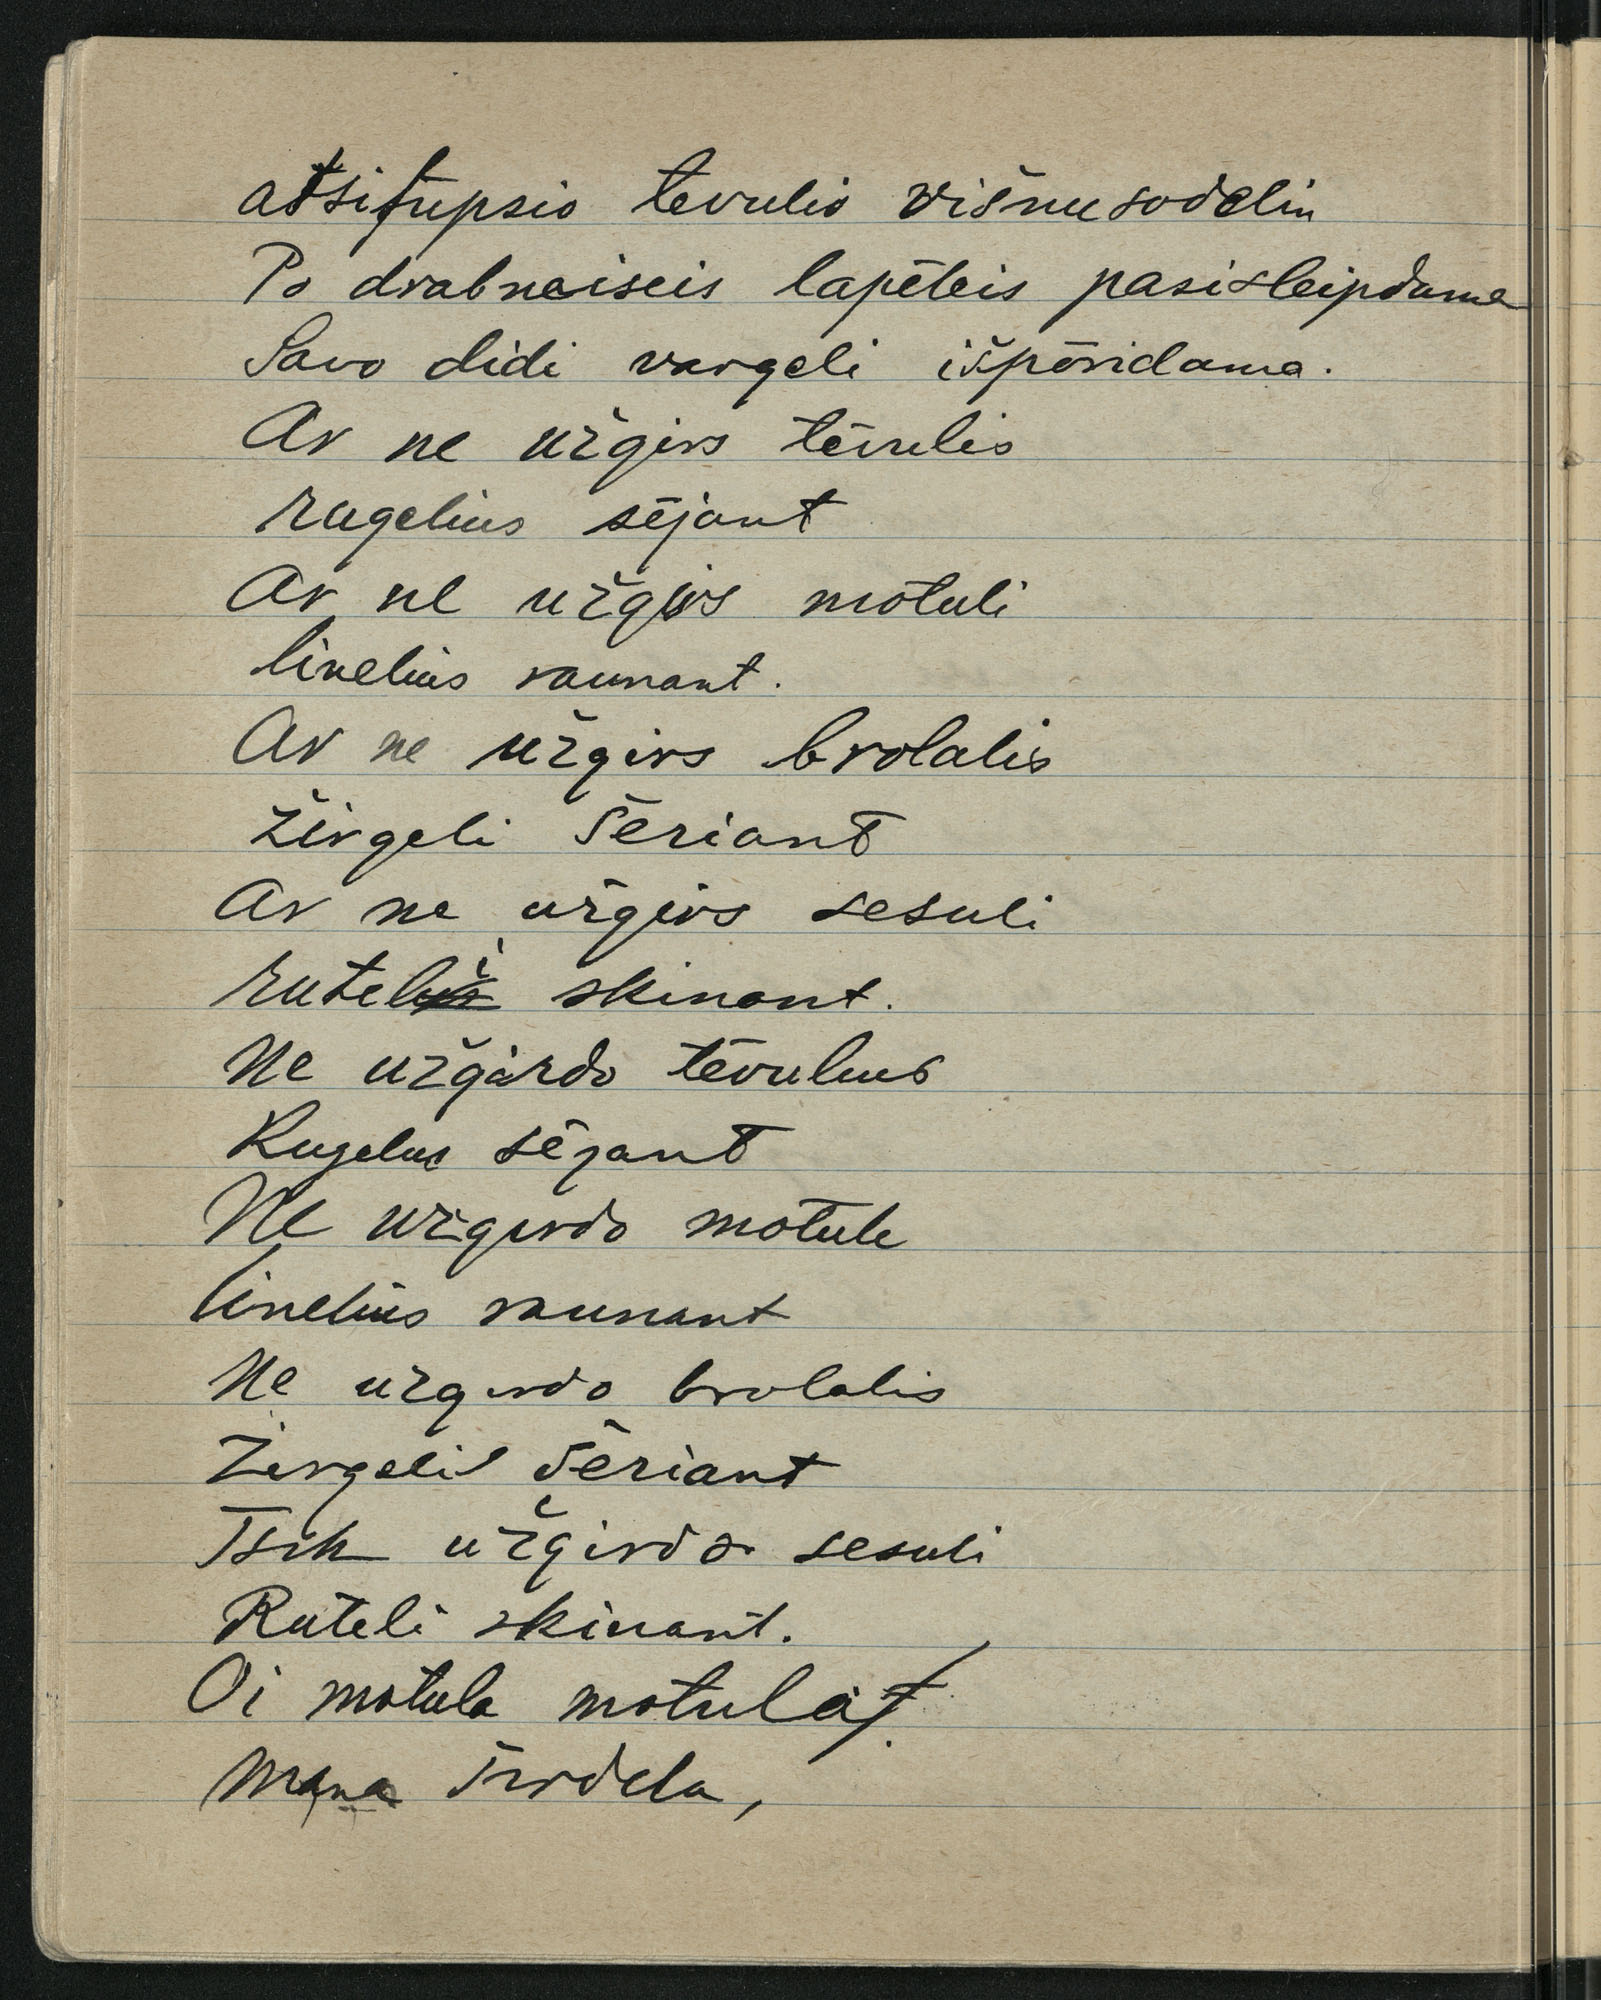 atsitūpsio tevulio višnu sodelin
Po drabneiseis lapēleis pasisleipdama
Savo didi vargeli išpōridama.
Ar ne užgirs tēvulis
rugelius sējant
Ar ne užgirs mōtuli
linelius raunant.
Ar ne užgirs brolalis
žirgeli šeriant
Ar ne užgirs sesuli
ruteli skinant.
Ne užgirdo tēvulius
Rugelus sējant
Ne užgirdo mōtule
linelius raunant
Ne užgirdo brolalis
Žirgelil šēriant
Tsik užgirdo sesuli
Rūteli skinant.
Oi motula motula
mana širdela,